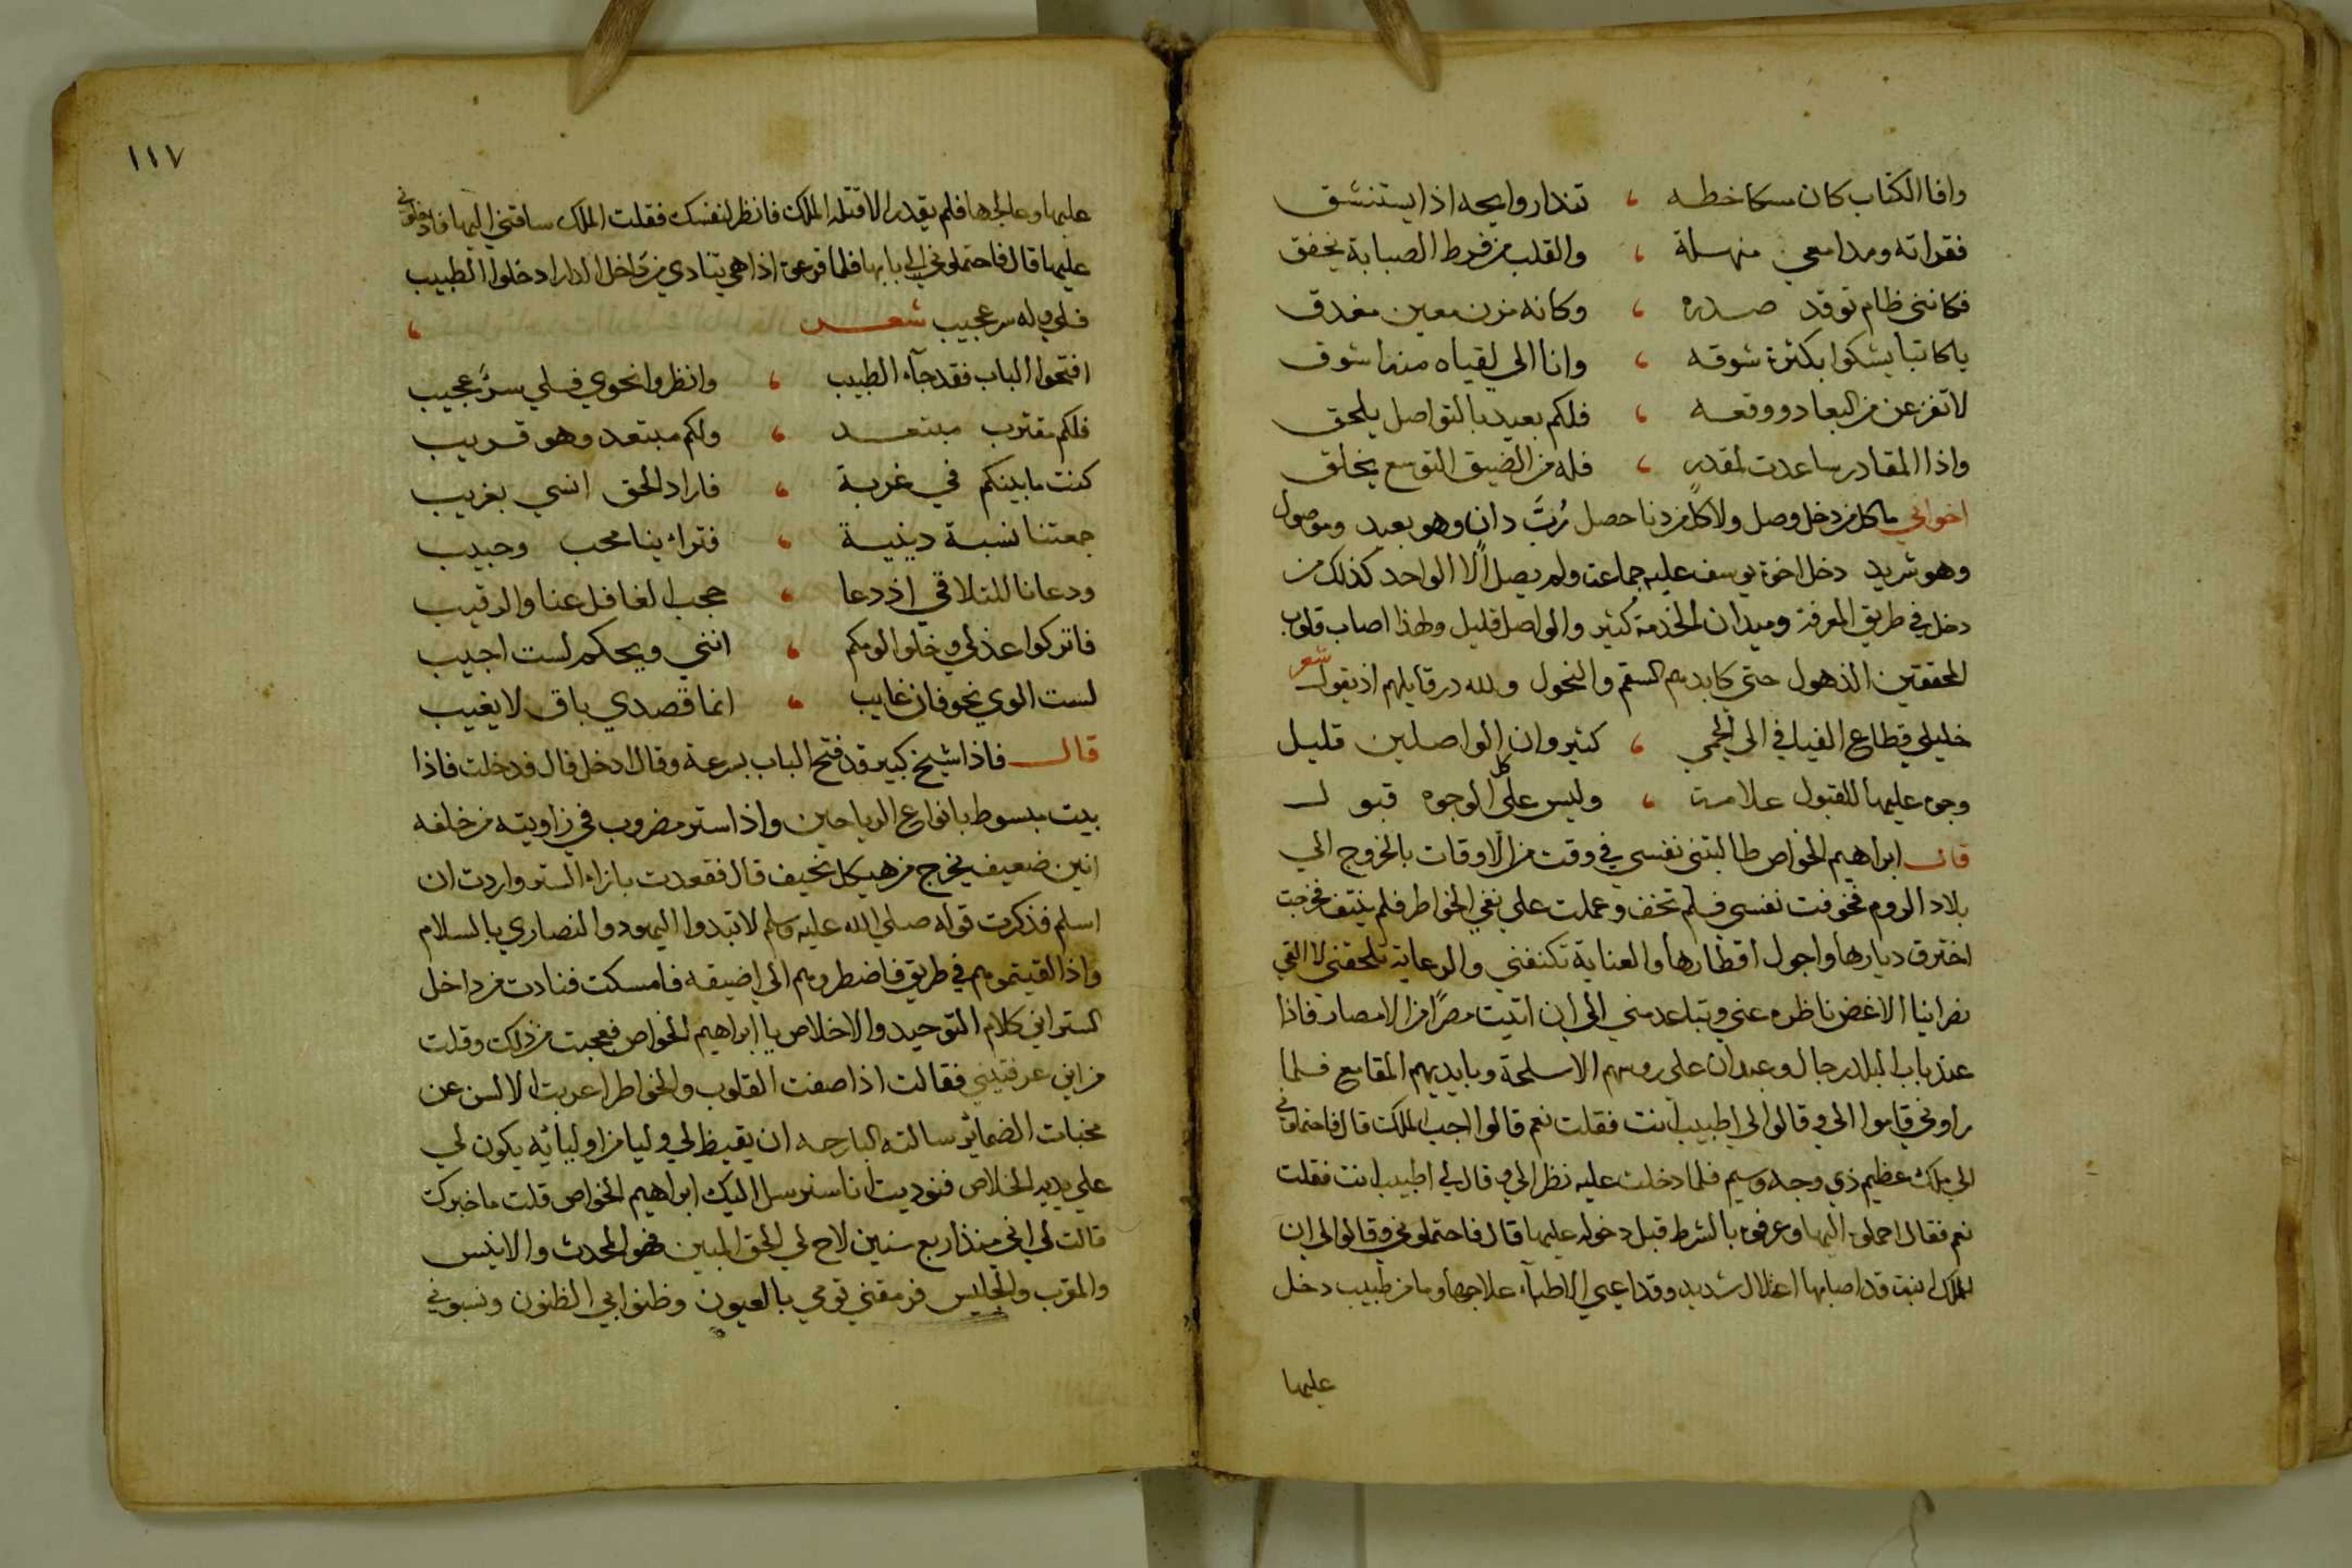 وافا الكتاب كان مسكا خطه ، تندا روايحه اذا يستنشق
فقراته ومدامعي منهملة ، والقلب من فرط الصبابة يخفق
فكانني ظام توقد صدره ، وكانه مزن معين مغدق
يا كاتبا يشكوا بكثرة شوقه ، وانا الى لقياه منه اشوق
لا تفزعن من البعاد ووقعه ، فلكم بعيد بالتواصل يلحق
واذا المقادر ساعدت لمقدر ، فله من الضيق التوسع يخلق
اخواني ما كل من دخل وصل ولا كلّ من دنا حصل رُبّ دانٍ وهو بعيد وموصول
وهو شريد دخل اخوة يوسف عليه جماعة ولم يصل الا الواحد كذلك من
دخل في طريق المعرفة وميدان الخدمة كثير والواصل قليل ولهذا اصاب قلوب
المحققين الذهول حتي كابدهم السقم والنحول ولله در قايلهم اذ يقول شعر
خليلي قطاع الفيافي الى الحمي ، كثير وان الواصلين قليل
وجوه عليها للقبول علامة ، وليس على كل الوجوه قبول
قال ابراهيم الخواص طالبتني نفسي في وقت من الاوقات بالخروج الي
بلاد الروم فخوفت نفسي فلم تخف وعملت علي نفي الخواطر فلم ينتف فخرجت
اخترق ديارها واجول اقطارها والعناية تكنفني والرعاية تلحقني لا القي
نصرانيا الا غض ناظره عني وتباعد مني الى ان اتيت مصرًا من الامصار فاذا
عند باب البلد رجال وعبدان علي روسهم الاسلحة وبايديهم المقامع فلما
راوني قاموا الى وقالوا لي اطبيب انت فقلت نعم قالوا اجب الملك قال فاحتملوني
الي ملك عظيم ذي وجه وسيم فلما دخلت عليه نظر الي وقال لي اطبيب انت فقلت
نعم فقال احملوه اليها وعرفوه بالشرط قبل دخوله عليها قال فاحتملوني وقالوا لي ان
للملك ابنة قد اصابها اعتلال شديد وقد اعيي الاطبآء علاجها وما من طبيب دخل
عليها
١١٧
عليها وعالجها فلم يقدر الا قتله الملك فانظر لنفسك فقلت الملك ساقني اليها فادخلوني
عليها قال فاحتملوني الي بابها فلما قرعته اذا هي تنادي من داخل الدار ادخلوا الطبيب
فلي وله سر عجيب شعر ،
افتحوا الباب فقد جآء الطبيب ، وانظروا نحوي فلي سرّ عجيب
فلكم مقترب مبتعد ، ولكم مبتعد وهو قريب
كنت ما بينكم في غربة ، فاراد الحق انسي بغريب
جمعتنا نسبة دينية ، فتراء ينا محب وحبيب
ودعانا للتلاقي اذ دعا ، حجب الغافل عنا والرقيب
فاتركوا عذلي وخلوا لومكم ، انني ويحكم لست اجيب
لست الوي نحو فان غايب ، انما قصدي باق لا يغيب
قال فاذا شيخ كبير قد فتح الباب بسرعة وقال ادخل قال فدخلت فاذا
بيت مبسوط بانواع الرياحين واذا ستر مضروب في زاويته من خلفه
انين ضعيف يخرج من هيكل نحيف قال فقعدت بازاء الستر واردت ان
اسلم فذكرت قوله صلي الله عليه وسلم لا تبدوا اليهود والنصاري بالسلام
واذا لقيتموهم في طريق فاضطروهم الي اضيقه فامسكت فنادت من داخل
الستر اني كلام التوحيد والاخلاص يا ابراهيم الخواص فعجبت من ذلك وقلت
من اين عرفتيني فقالت اذا صفت القلوب والخواطر اعربت الالسن عن
مخبات الضمائر سالته البارحه ان يقيظ لي وليا من اوليائه يكون لي
علي يديه الخلاص فنوديت انا سنرسل اليك ابراهيم الخواص قلت ما خبرك
قالت لي اني منذ اربع سنين لاح لي الحق المبين فهو المحدث والانيس
والمقرب والجليس فرمقني قومي بالعيون وظنوا بي الظنون ونسبوني